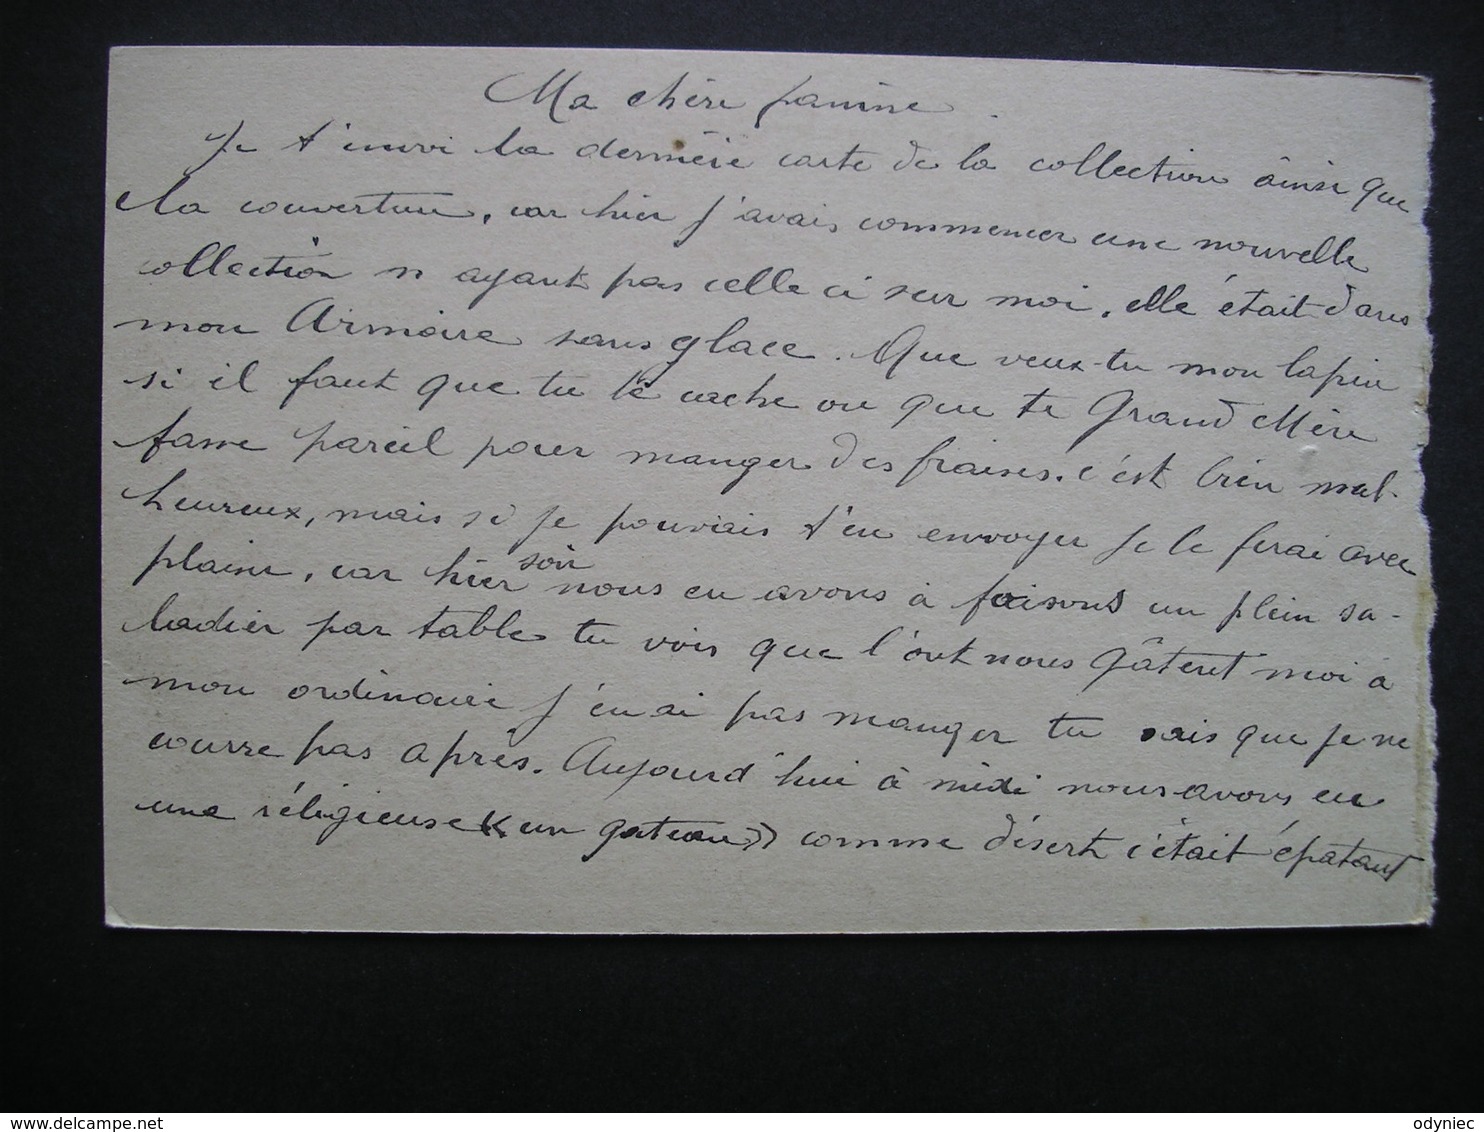 Ma chère
Je t'envoi la dernière carte de la collection ainsi que
la couverture, car hier j'avais commencer une nouvelle
collection n'ayant pas celle ci sur moi, elle était dans
mon Armoire sans glace. Que veux-tu mon lapin
si il faut que tu te cache ou que ta Grand Mère
fasse pareil pour manger des fraises. c'est bien mal-
heureux, mais si je pouvais t'en envoyer je le ferai avec
plaisir, car hier soir nous en avons à foisons un plein sa-
ladier par table tu vois que l'ont nous gâtent moi à
mon ordinaire j'en ai pas manger tu sais que je ne
courre pas après. Aujourd'hui à midi nous avons eu
une réligieuse « un gateau » comme désert c'était épatant
odyniec